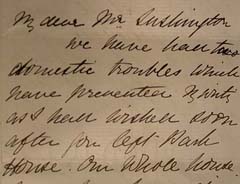 My dear Mr Lushington
we have had two
domestic troubles which
have prevented My writing
as I had wished soon
after you left Wash
House. Our Whole house